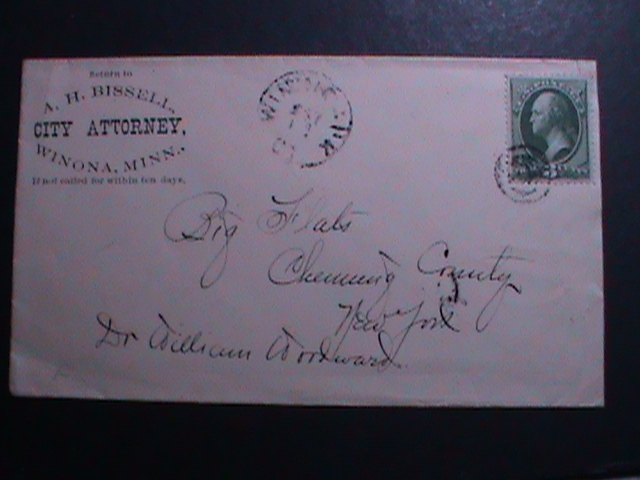 Return to
A. H. BISSELL,
CITY ATTORNEY,
WINONA, MINN.,
If not called for within ten days,
Big Flats
Chemung County
New York
Dr William Woodward